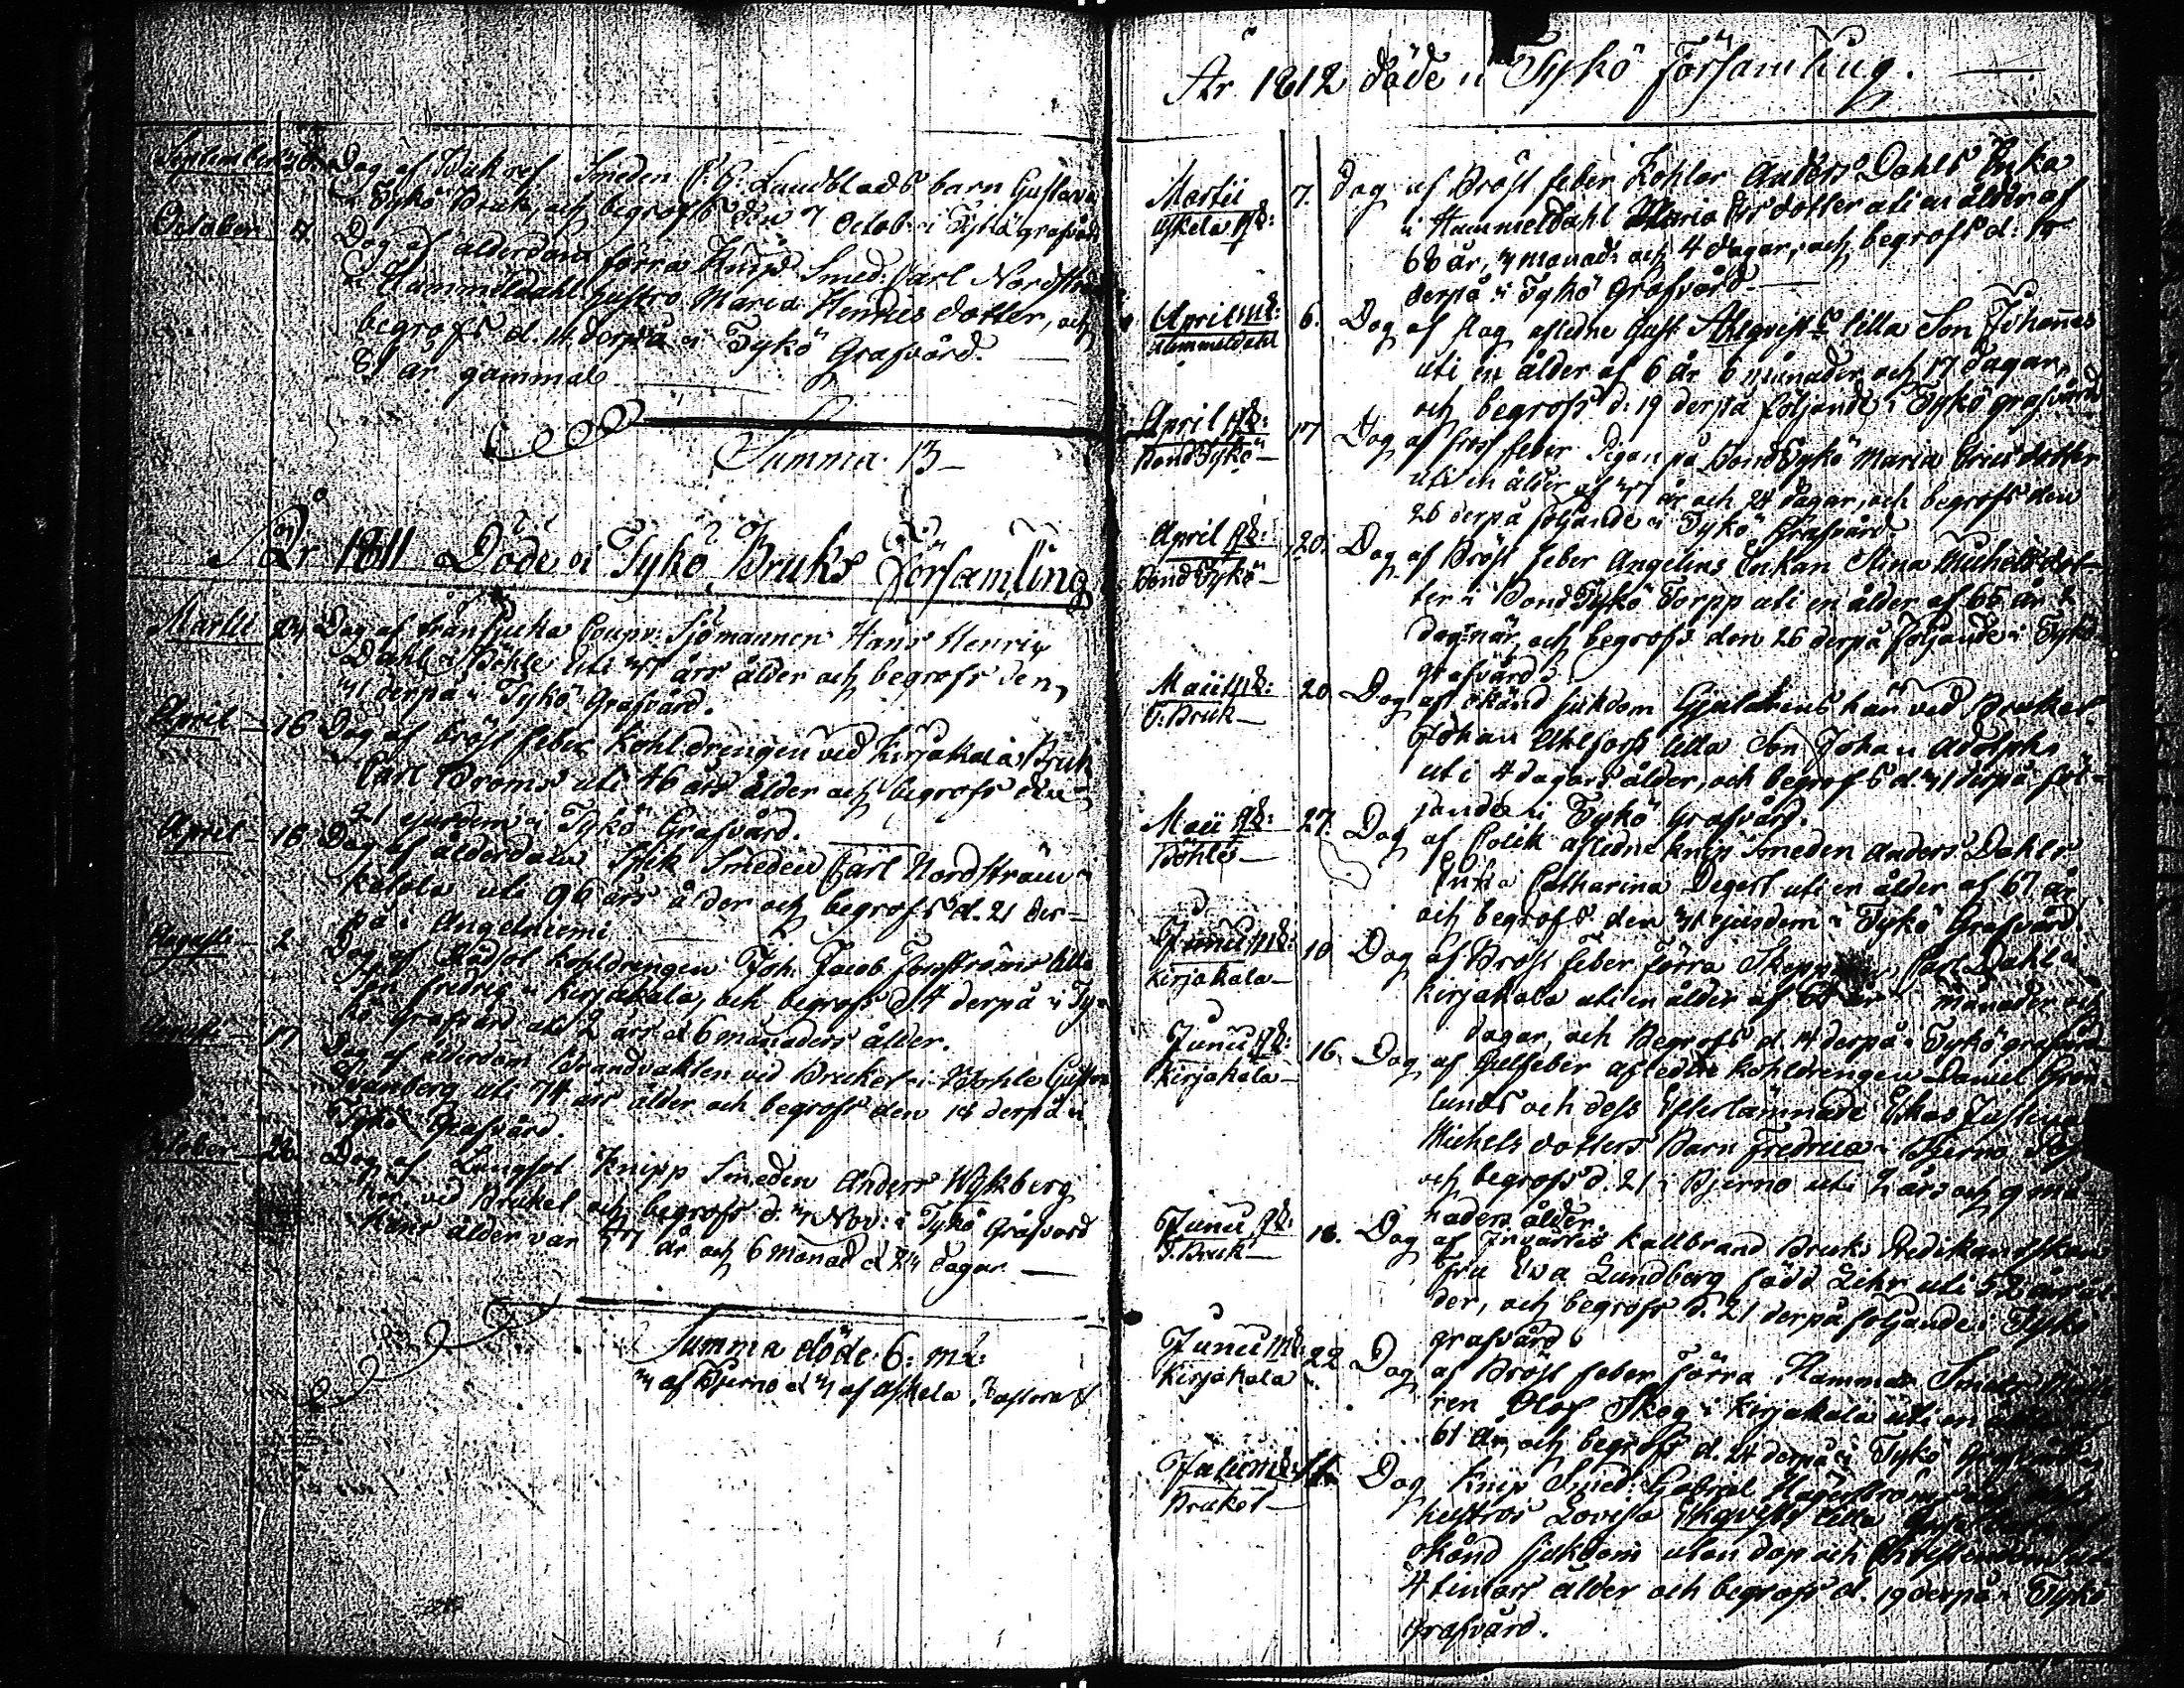 September 30. Dag af Smeden C: G: Lundblads barn Gustava
i Tykö Bruk, och begrofs den 7 Octob: i Tykö grafvård
October 7 Dag af ålderdom förra Knip Smed: Carl Nordström
i Hummeldahl hustro Maria Henrics dotter, och
begrofs d. 14 derpå i Tykö Grafvård.
81 år gammal
Summa. 13
År 1811 Döde i Tykö Bruks Församling
Martii Dag af Sjömannen Hans Henric
Dahl i Böhle uti års ålder och begrofs den
derpå i Tykö Grafvård.
April 16 Dag af Bröst feber Kohldrengen ved Kirjakala Bruk
Carl Broms uti 46 års ålder och begrofs den
21 ejusdem i Tykö Grafvård.
April 18 Dag af ålderdom Smeden Carl Nordström
Ketola uti 96 års ålder och begrofs d. 21 der-
på i Angelniemi
Augusti 2 Dag af Rödsot kohldrengen Joh: Jacob Forsströms lilla
Son Fredric i Kirjakala, och begrofs d 4 derpå i Ty-
kö grafvård uti 2 års & 6 månaders ålder.
Augusti 17 Dag af ålderdom Brandvakten ved Bruket i Böhle Gustav
Svanberg uti 74 års ålder och begrofs den 18 derpå i
Tykö Grafvård.
October 26 Dag af Lungsot Knipp Smeden Anders Wykberg
här ved Bruket och begrofs d. Nov: i Tykö Grafvård
hans ålder var år och 6 Månad & dagar
Summa döde 6: mk:
af Bjerno & af Uskela Pastorat
År 1812 döde i Tykö Församling.
Martii 7. Dag af Bröst feber Kohlar Anders Dahls Enka
Uskela qk: i Hummeldahl Maria Ersdotter uti en ålder af
68 år, månad och 4 dagar, och begrofs d: 15
derpå i Tykö Grafvård
April mk: 6. Dag af slag afledne Gust: Ahlqvists lilla Son Johannes
Hummeldahl uti en ålder af 6 år 6 månader och 17 dagar,
och begrofs d: 19 derpå följande i Tykö grafvård
April qk: 17 Dag af fross feber Pigan på BondTykö Maria Erics dotter
BondTykö uti en ålder af år och 24 dagar, och begrofs den
26 derpå följande i Tykö Grafvård.
April qk: 20. Dag af Bröst feber Angelins Enkan Stina Michels dot-
BondTykö ter i BondTykö Torpp uti en ålder af 65 år
dag när, och begrofs den 26 derpå följande i Tykö
grafvård
Maii mk: 20. Dag af okänd sjukdom här ved Bruket
T. Bruk Johan Ahlfors lilla Son Johan Adolph
uti 4 dagars ålder, och begrofs d. 31 derpå föl-
jande i Tykö Grafvård.
Maii qk: 27. Dag af Colik afledne knip Smeden Anders Dahls
Böhle Enka Catharina Degert uti en ålder af 67 år
och begrofs den 31 ejusdem i Tykö Grafvård.
Junii mk: 10 Dag af Bröst feber förra Carl Dahl
Kirjakala kirjakala uti en ålder af 64 år månader och
dagar, och Begrofs d. 14 derpå i Tykö grafvård
Junii qk: 16. Dag af Gulfeber afledne kohldrengen Daniel Grön
Kirjakala lunds och dess Efterlämnade Enkas Justina
Michels dotters Barn Fredrica i Bjerno
och begrofs d. 21 i Bjerno uti 2 års och 9 må-
naders ålder.
Junii qk: 18. Dag af Invärtes kallbrand Bruks Predikantskan
T. Bruk Fru Eva Lundberg född Lihr uti 52 års ål-
der, och begrofs d. 21 derpå följande i Tykö
grafvård
Junii mk: 22 Dag af Bröst feber förra Hammar Smeds Mäst
Kirjakala ren Olof Skog i Kirjakala uti en ålder af
61 år, och begrofs d. 24 derpå i Tykö Grafvård
Julii mk: Dag Knip Smed: Gabriel Hagerströms
Bruket hustros Lovisa Ekqvists lilla
okänd sjukdom utan dop och
4 timars ålder och begrofs d. 19 derpå i Tykö
Grafvård.